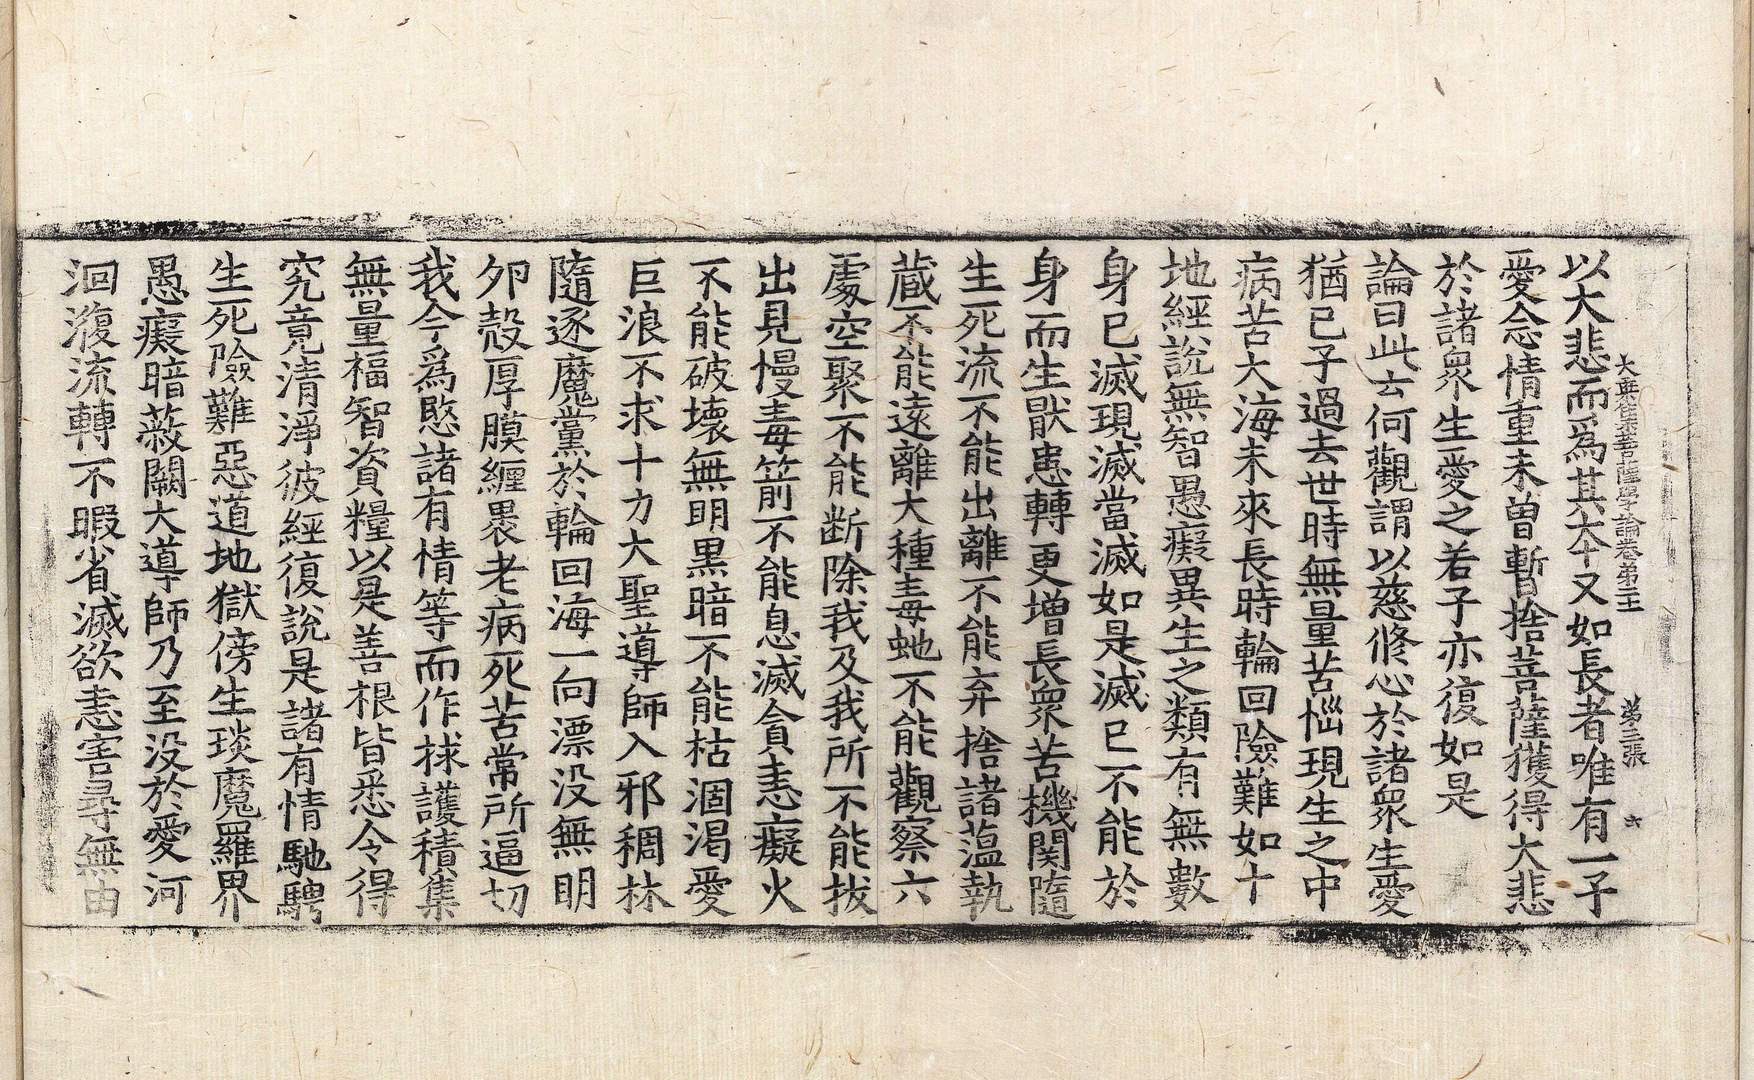 大乗集菩薩學論卷第三 第三張 六
以大悲而爲其本又如長者唯有一子
愛念情重未曾暫捨菩薩獲得大悲
於諸衆生愛之若子亦復如是
論曰此云何觀謂以慈修心於諸衆生愛
猶已子過去世時無量苦惱現生之中
病苦大海未來長時輪回險難如十
地經說無智愚癡異生之類有無數
身已滅現滅當滅如是滅已不能於
身而生猒患轉更增長衆苦機関隨
生死流不能出離不能弃捨諸蕰執
蔵不能遠離大種毒虵不能觀察六
處空聚不能断除我及我所不能拔
出見慢毒箭不能息滅貪恚癡火
不能破壞無明黑暗不能枯涸渴愛
巨浪不求十力大聖導師入邪稠林
隨逐魔黨於輪回海一向漂没無明
夘㲉厚膜纏褁老病死苦常所逼切
我今爲愍諸有情等而作捄護積集
無量福智資糧以是善根皆悉令得
究竟清淨彼經復說是諸有情馳騁
生死險難惡道地獄傍生琰魔羅界
愚癡暗蔽闕大導師乃至没於愛河
洄澓流轉不暇省滅欲恚害尋無由